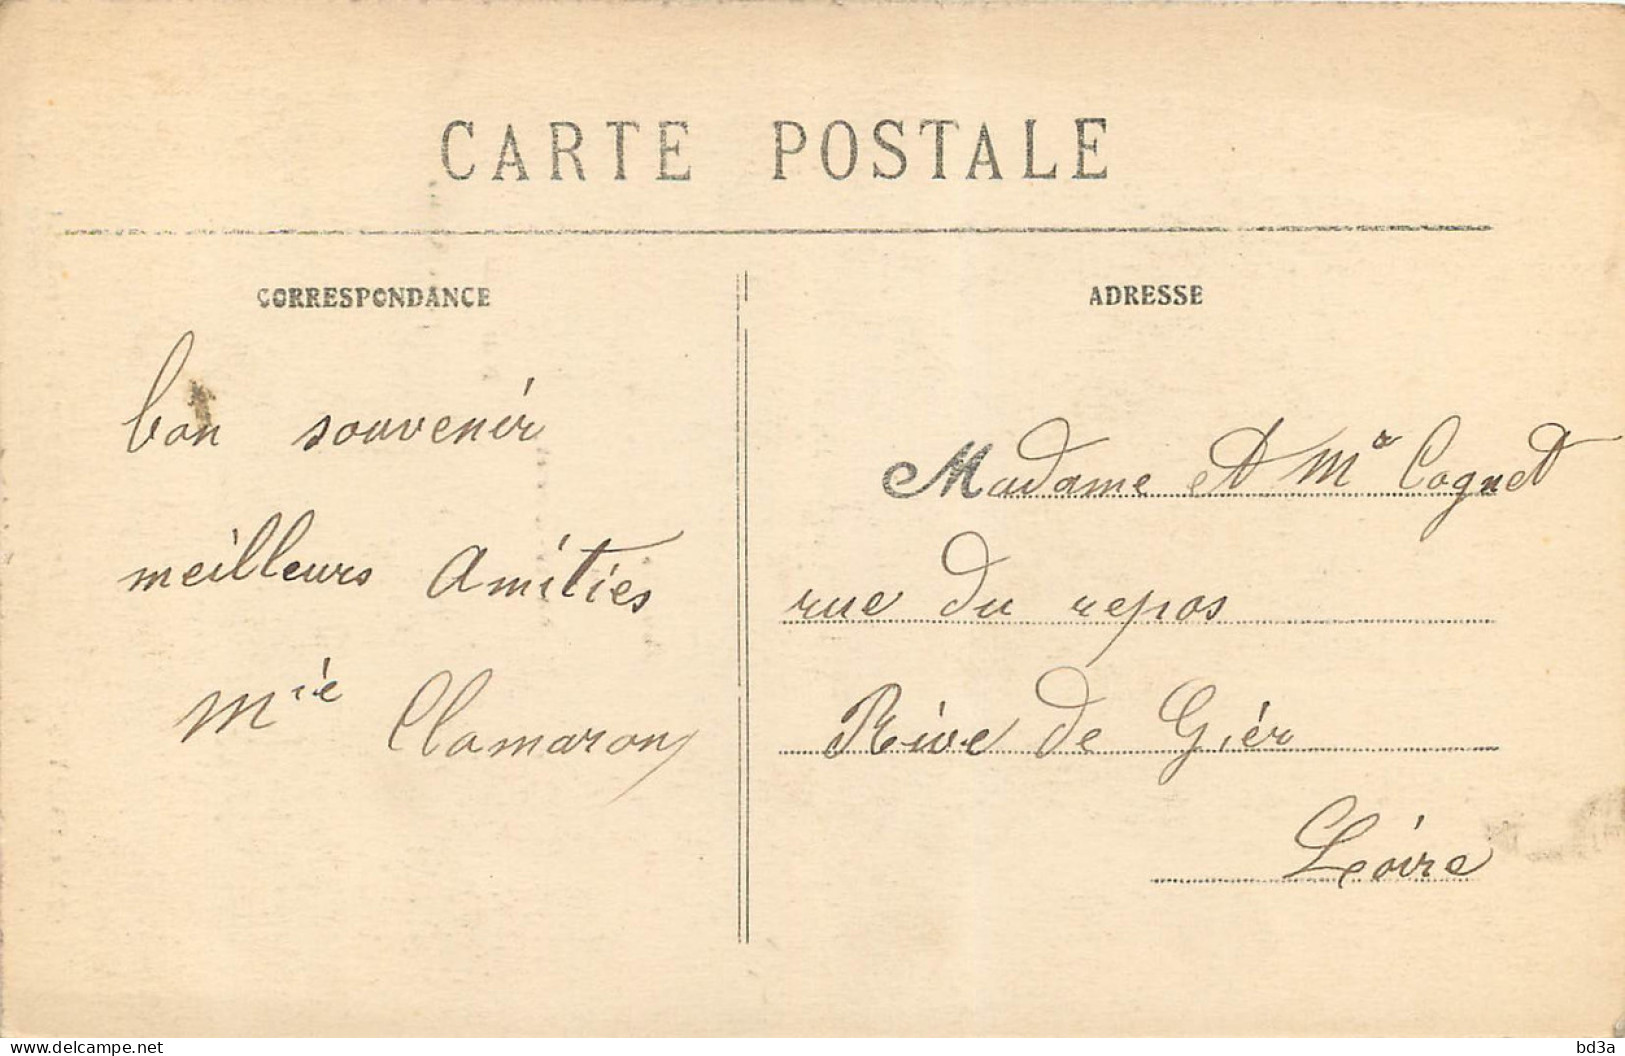 CARTE POSTALE
CORRESPONDANCE
bon souvenir
meilleurs Amitiés
Mie Clamaron
ADRESSE
Madame et Mr Coquet
rue du repos
Rive de Gier
Loire
delcampe.net
bd3a